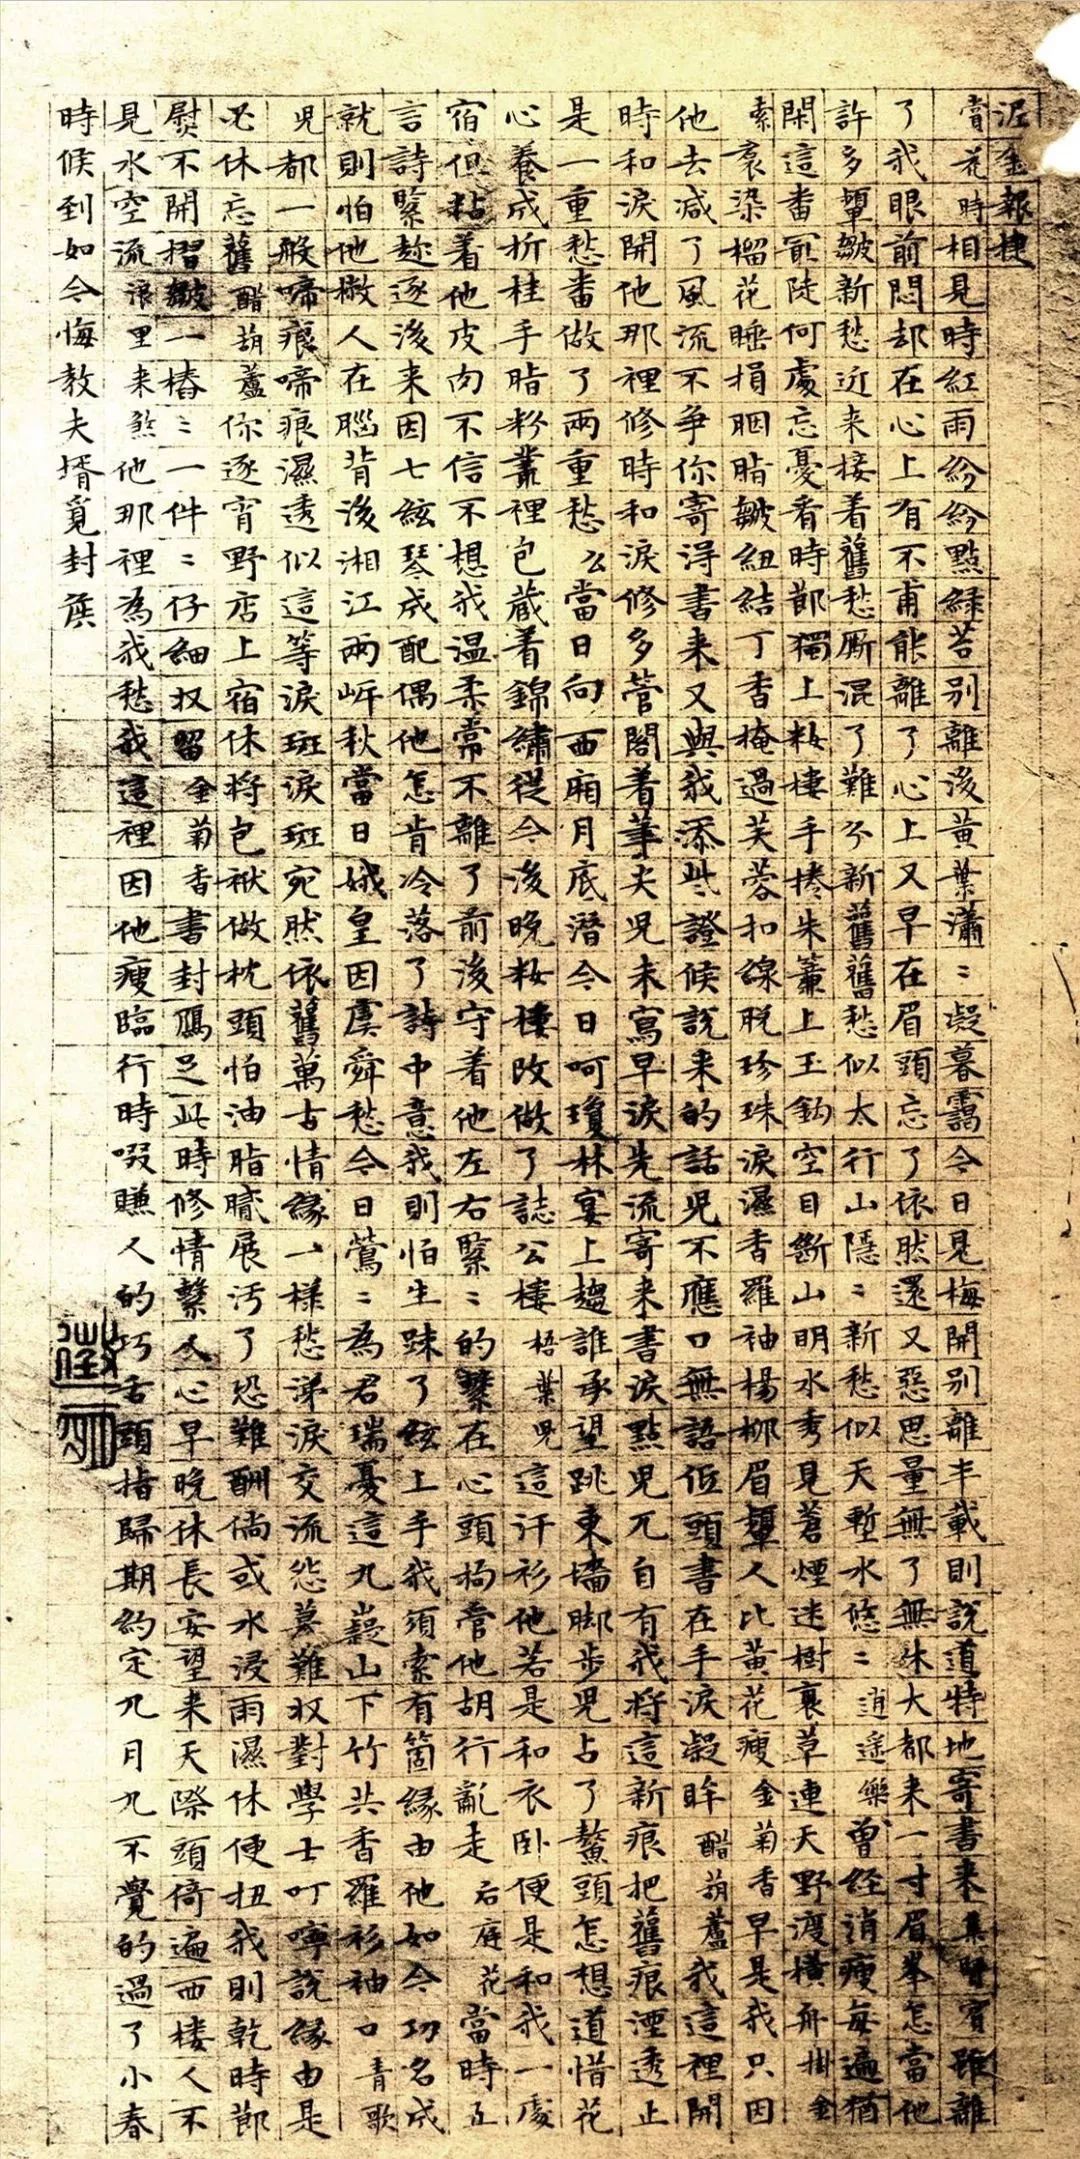 泥金報捷
賞花時相見時紅雨紛紛點綠苔別離後黃葉瀟〻凝暮靄今日見梅開別離半載則說道特地寄書来集賢賓雖離
了我眼前悶却在心上有不甫能離了心上又早在眉頭忘了依然還又惡思量無了無休大都来一寸眉峯怎當他
許多顰皺新愁近来接着舊愁厮混了難分新舊舊愁似太行山隱〻新愁似天塹水悠〻逍遙樂曾經消瘦每遍猶
閑這番最陡何處忘憂看時節獨上粧樓手捲朱簾上玉鈎空目斷山明水秀見蒼煙迷樹衰草連天野渡橫舟掛金
索裙染榴花睡損胭脂皺紐結丁香掩過芙蓉扣線脫珍珠淚濕香羅袖楊柳眉顰人比黃花瘦金菊香早是我只因
他去減了風流不爭你寄淂書来又與我添些證候說来的話兒不應口無語低頭書在手淚凝眸醋葫蘆我這裡開
時和淚開他那裡修時和淚修多管閣着筆尖兒未寫早淚先流寄来書淚點兒兀自有我將這新痕把舊痕湮透止
是一重愁番做了兩重愁么當日向西廂月底潛今日呵瓊林宴上搊誰承望跳東墻脚步兒占了鰲頭怎想道惜花
心養成折桂手脂粉叢裡包藏着錦繡從今後晚粧樓改做了誌公樓梧葉兒這汗衫他若是和衣卧便是和我一處
宿但粘着他皮肉不信不想我溫柔常不離了前後守着他左右緊〻的繫在心頭拘管他胡行亂走后庭花當時五
言詩緊趁逐後来因七絃琴成配偶他怎肯冷落了詩中意我則怕生踈了絃上手我須索有箇緣由他如今功名成
就則怕他撇人在腦背後湘江兩岸秋當日娥皇因虞舜愁今日鶯〻為君瑞憂這九嶷山下竹共香羅衫袖口青歌
兒都一般啼痕啼痕濕透似這等淚斑淚斑宛然依舊萬古情緣一樣愁涕淚交流怨慕難收對學士叮嚀說緣由是
必休忘舊醋葫蘆你逐宵野店上宿休將包袱做枕頭怕油脂膩展污了恐難酬倘或水浸雨濕休便扭我則乾時節
熨不開摺皺一樁〻一件〻仔細收留金菊香書封鴈足此時修情繫人心早晚休長安望来天際頭倚遍西樓人不
見水空流浪里来煞他那裡為我愁我這裡因他瘦臨行時啜賺人的巧舌頭指歸期約定九月九不覺的過了小春
時候到如今悔教夫壻覓封侯
徵明